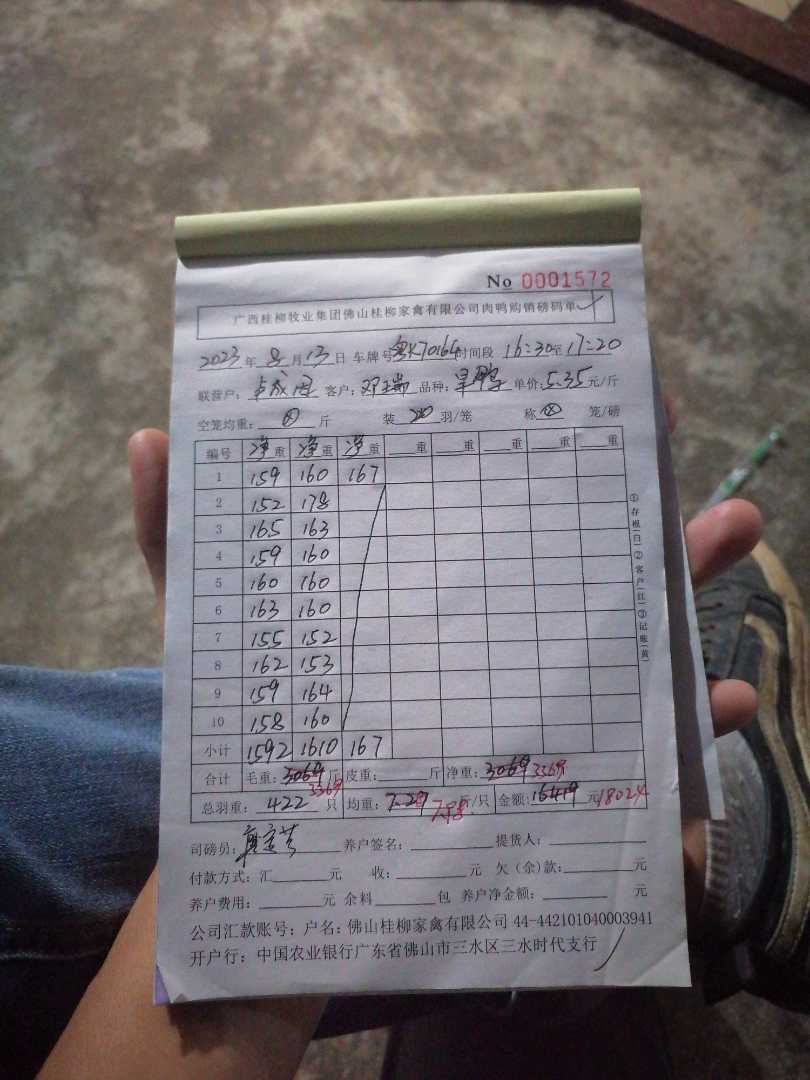 No 0001572
广西桂柳牧业集团佛山桂柳家禽有限公司肉鸭购销磅码单
2023年8月13日 车牌号粤K70164时间段 16:30至17:20
联营户: 卢成周 客户: 邓瑞 品种: 旱鸭 单价:5.35元/斤
空笼均重: 斤 装 羽/笼 称 笼/磅
编号 净重 净重 净重 重 重 重 重 重
1 159 160 167
2 152 178
3 165 163
4 159 160
5 160 160
6 163 160
7 155 152
8 162 153
9 159 164
10 158 160
小计 1592 1610 167
合计 毛重:3069斤 3369 皮重: 斤 净重:3069 3369
总羽重: 422 只 均重: 7.27 斤/只 7.98 金额:16419元 18024
司磅员: 养户签名: 提货人:
付款方式: 汇 元 收: 元 欠(余)款: 元
养户费用: 元 余料 包 养户净金额: 元
公司汇款账号: 户名: 佛山桂柳家禽有限公司 44-442101040003941
开户行: 中国农业银行广东省佛山市三水区三水时代支行
①存根(白)②客户(红)③记账(黄)